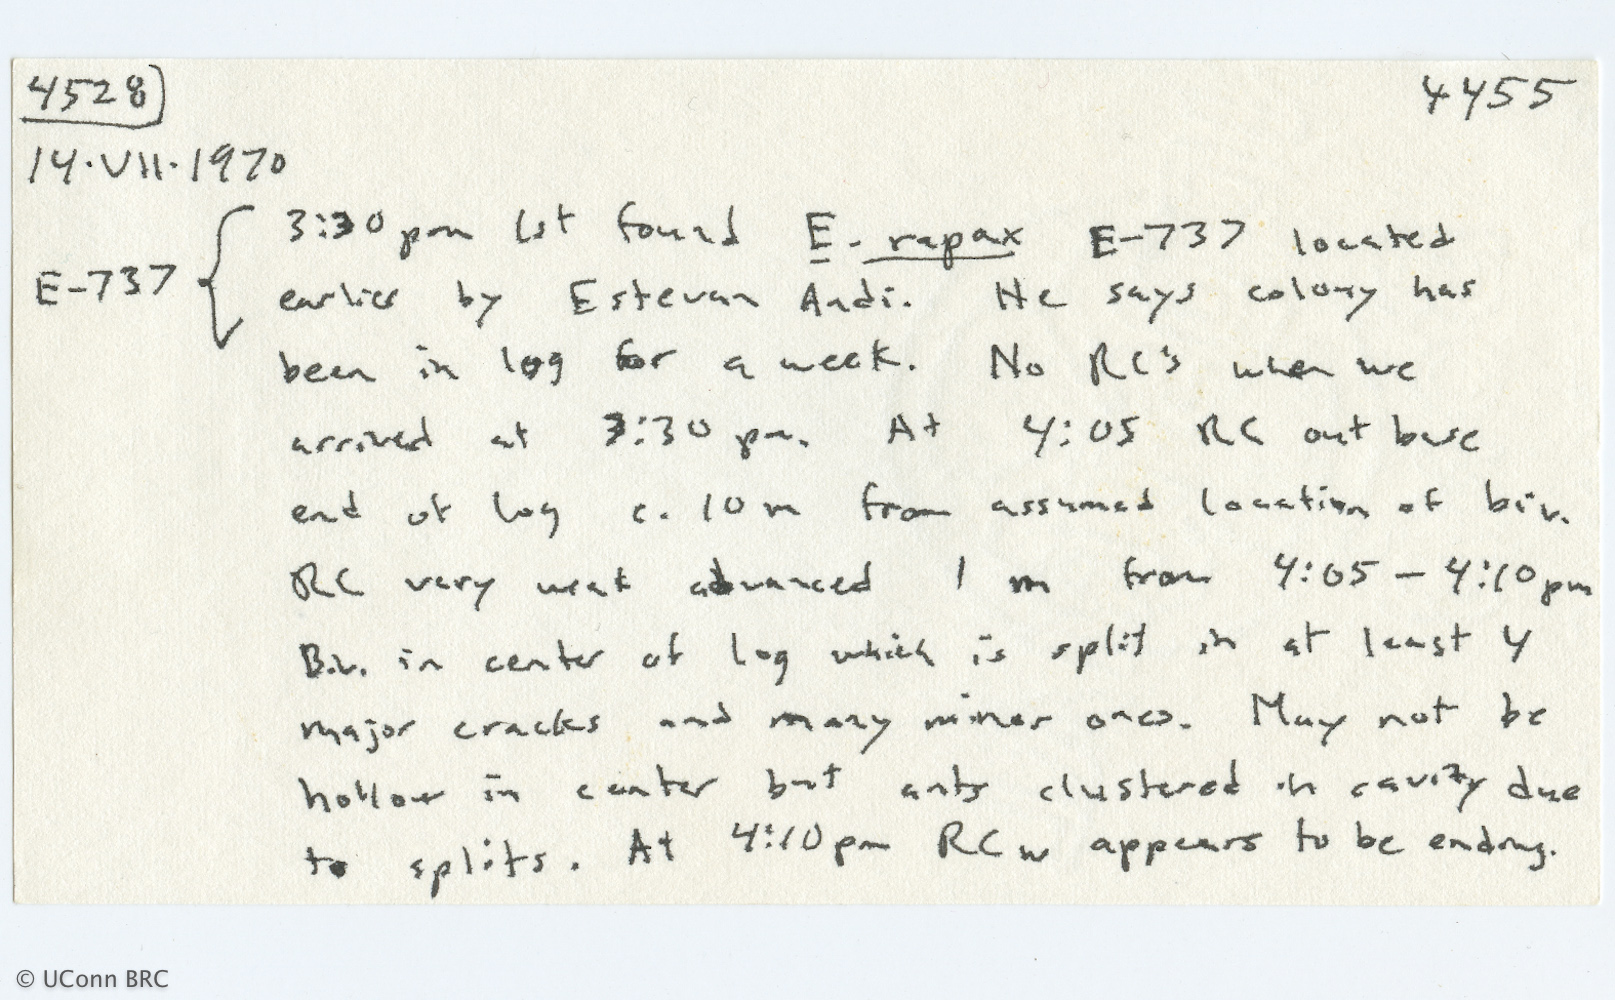 4528
4455
14·VII·1970
E-737
3:30 pm 1st found E. rapax E-737 located
earlier by Estevan Andi. He says colony has
been in log for a week. No RC's when we
arrived at 3:30 pm. At 4:05 RC out base
end of log c. 10 m from assumed location of biv.
RC very weak advanced 1 m from 4:05 - 4:10 pm
Biv. in center of log which is split in at least 4
major cracks and many minor ones. May not be
hollow in center but ants clustered in cavity due
to splits. At 4:10 pm RC w appears to be ending.
© UConn BRC